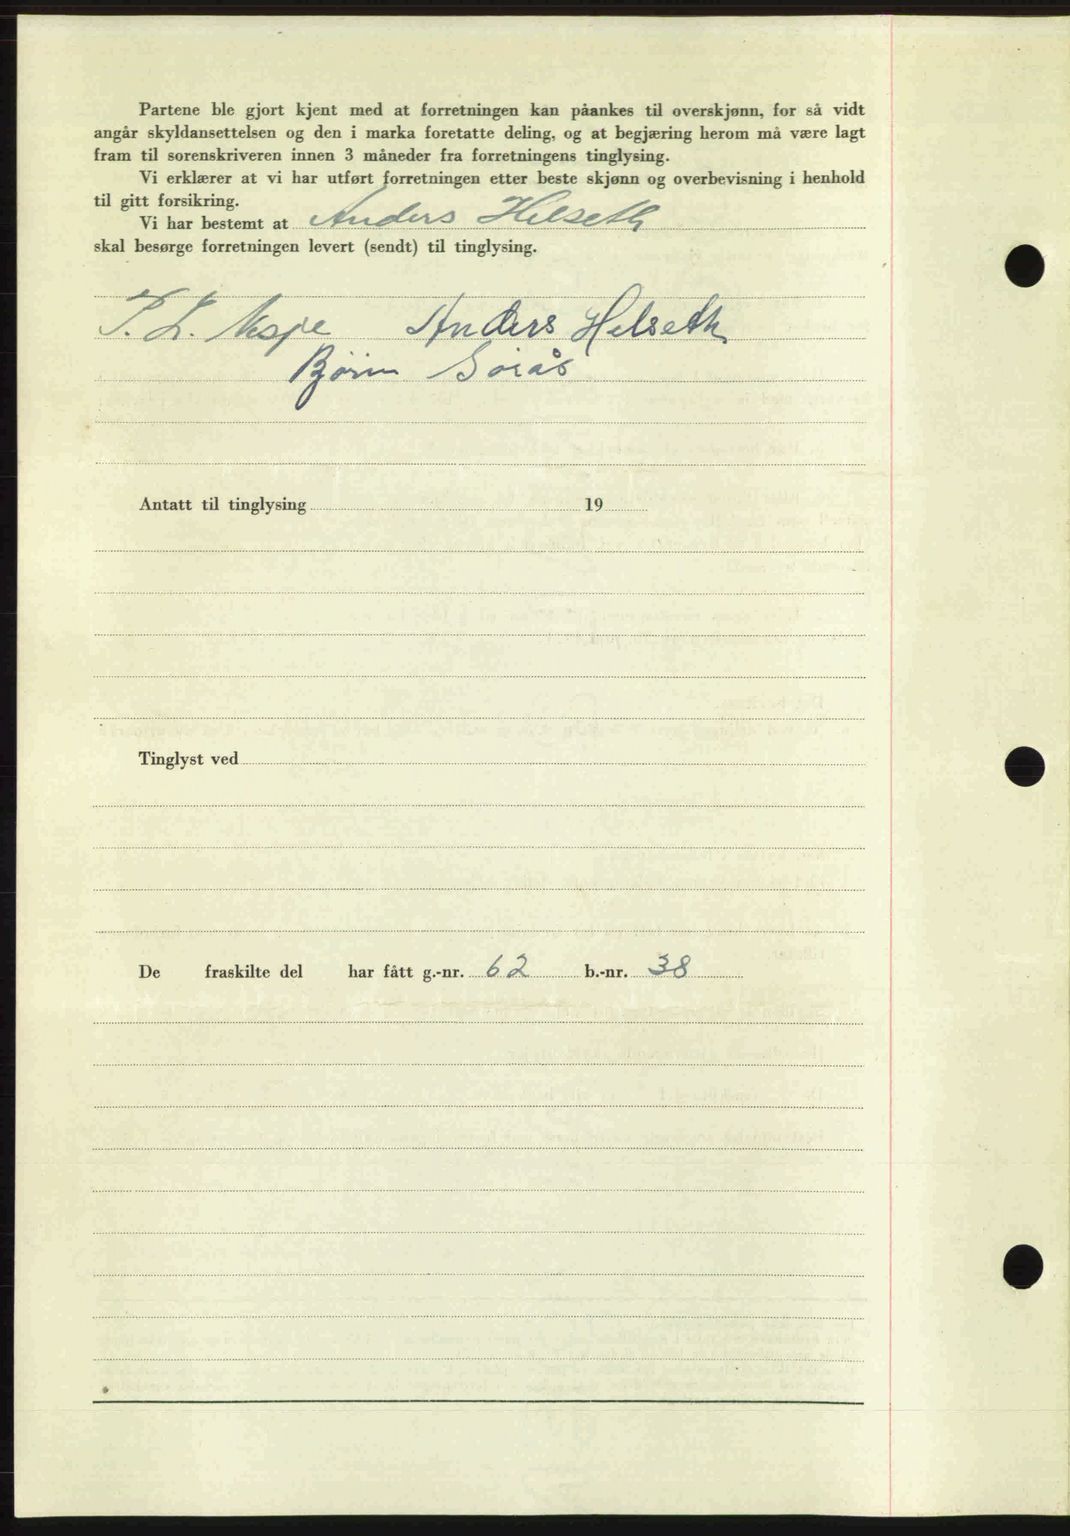 Partene ble gjort kjent med at forretningen kan påankes til overskjønn, for så vidt
angår skyldansettelsen og den i marka foretatte deling, og at begjæring herom må være lagt
fram til sorenskriveren innen 3 måneder fra forretningens tinglysing.
Vi erklærer at vi har utført forretningen etter beste skjønn og overbevisning i henhold
til gitt forsikring.
Vi har bestemt at Anders Helseth
skal besørge forretningen levert (sendt) til tinglysing.
P. L. Anders Helseth
Bjørn
Antatt til tinglysing 19
Tinglyst ved
De fraskilte del har fått g.-nr. 62 b.-nr. 38